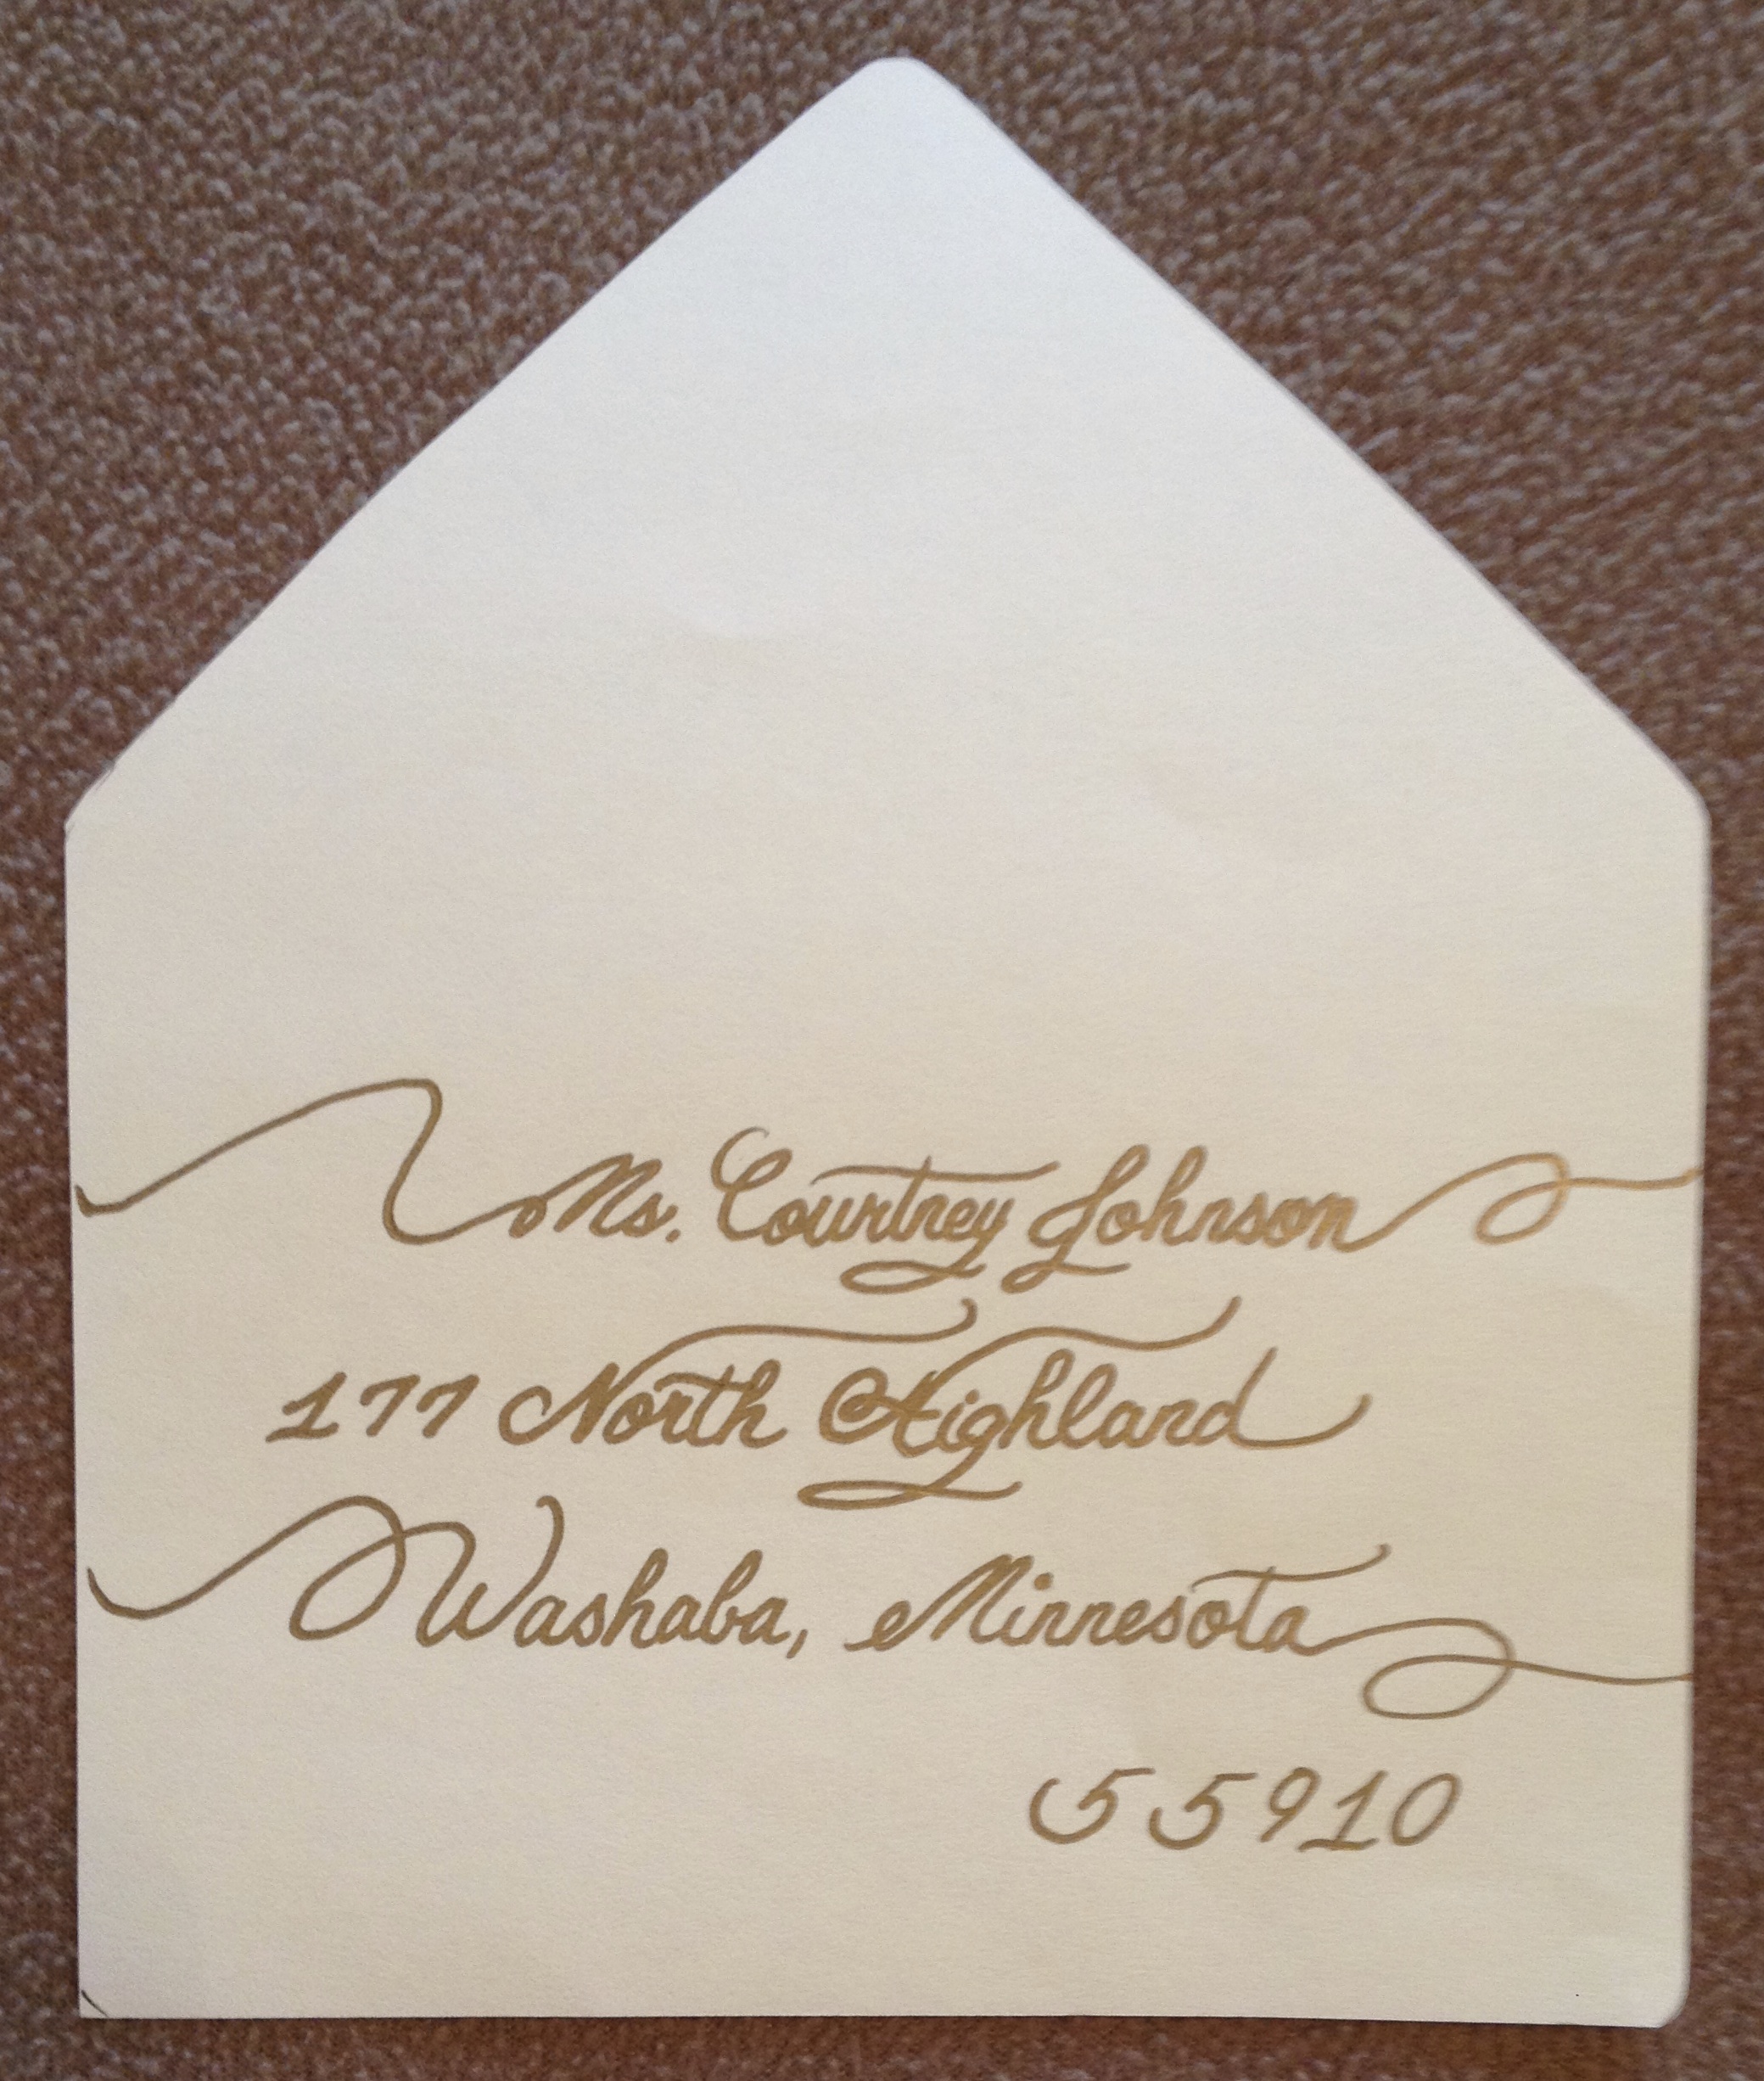 Ms. Courtney Johnson
177 North Highland
Washaba, Minnesota
55910